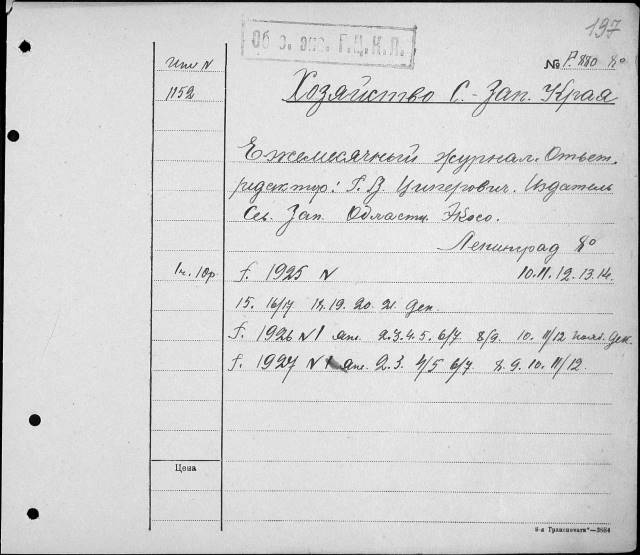 197
Об з. экз. Г.Ц.К.П.
Шт N
№ Р.880 8°
1152
Хозяйство С.-Зап. Края
Ежемесячный журнал. Ответ.
редактор: Г. В. Циперович. Издатель
Сев. Зап. Области. Экосо.
Ленинград 8°
1ч. 10р
г. 1925 N 10.11.12.13.14.
15. 16/17 18.19. 20. 21. Дек.
г. 1926 N 1 янв. 2.3.4.5. 6/7 8/9. 10. 11/12 нояб. Дек.
г. 1927 N 1 янв. 2.3. 4/5 6/7 8.9. 10. 11/12.
Цена
8-я Транспечати"—3884